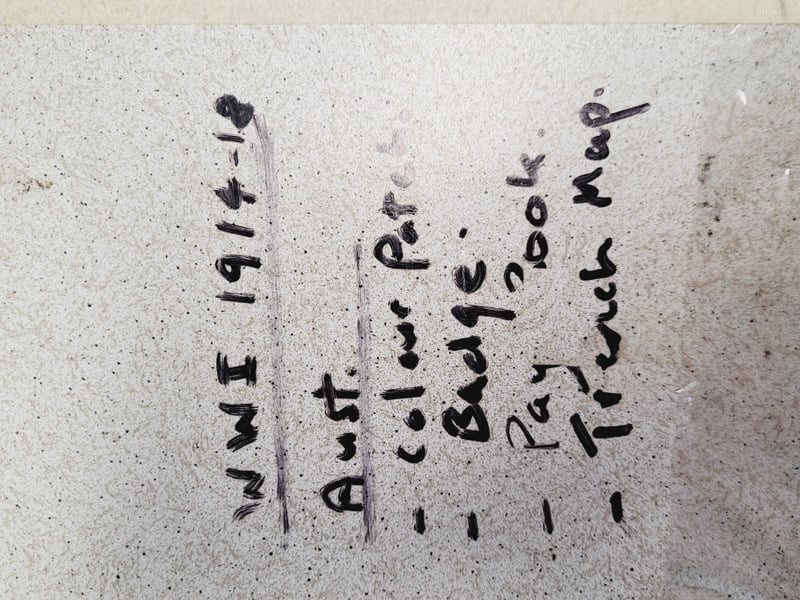 WWI 1914-18
Aust.
- Colour Patch.
- Badge.
- Pay Book.
- Trench Map.